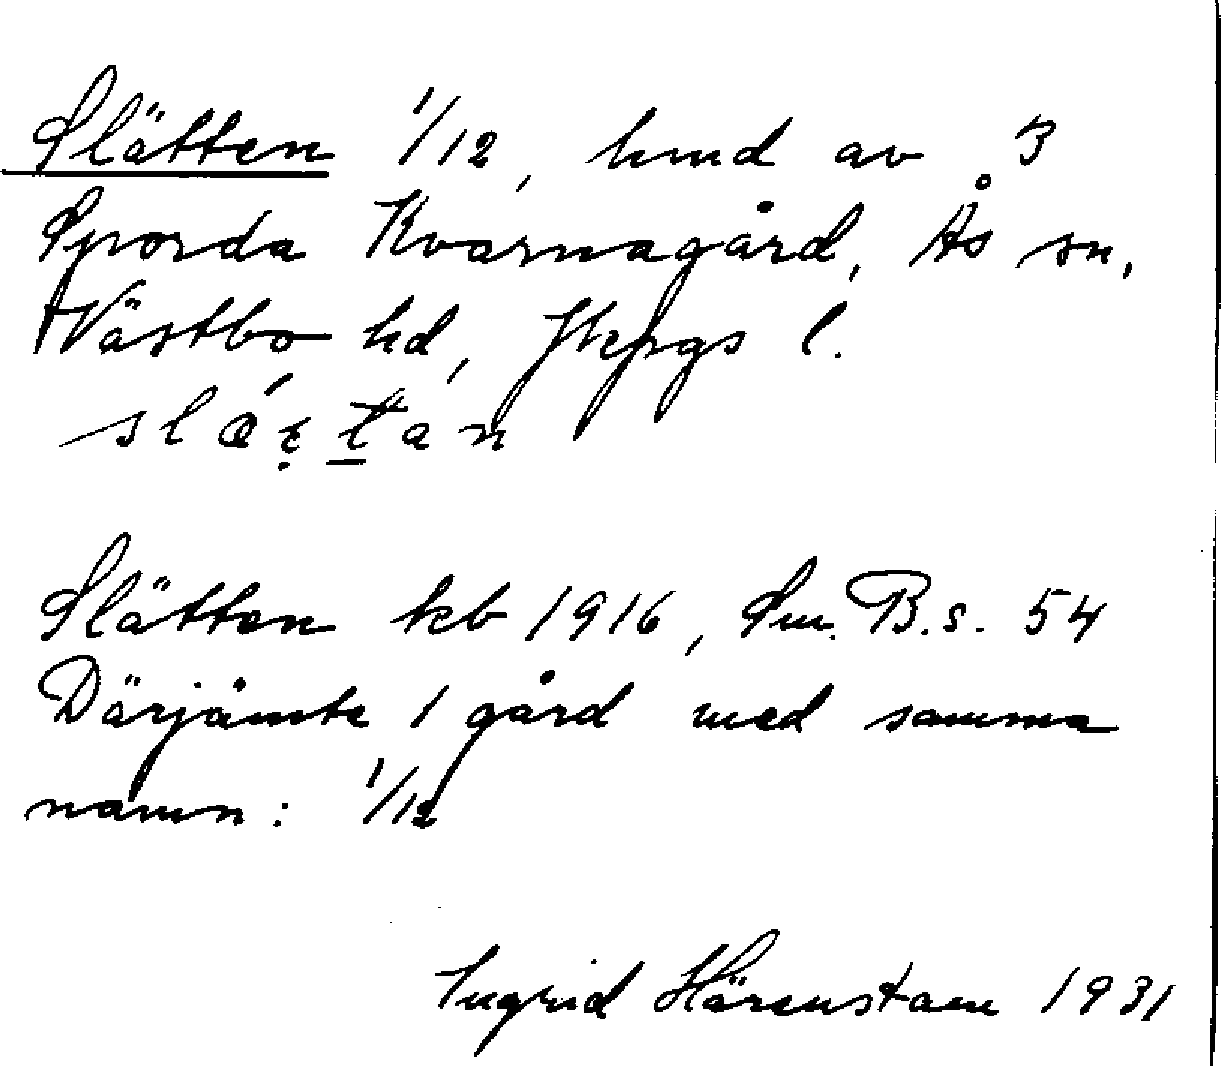 Slätten 1/12, hmd av 3
Sporda Kvarnagård, Ås sn,
Västbo hd, Jkpgs l.
Slätten kb 1916, Sm. B. s. 54
Därjämte 1 gård med samma
namn: 1/12
Ingrid Härenstam 1931